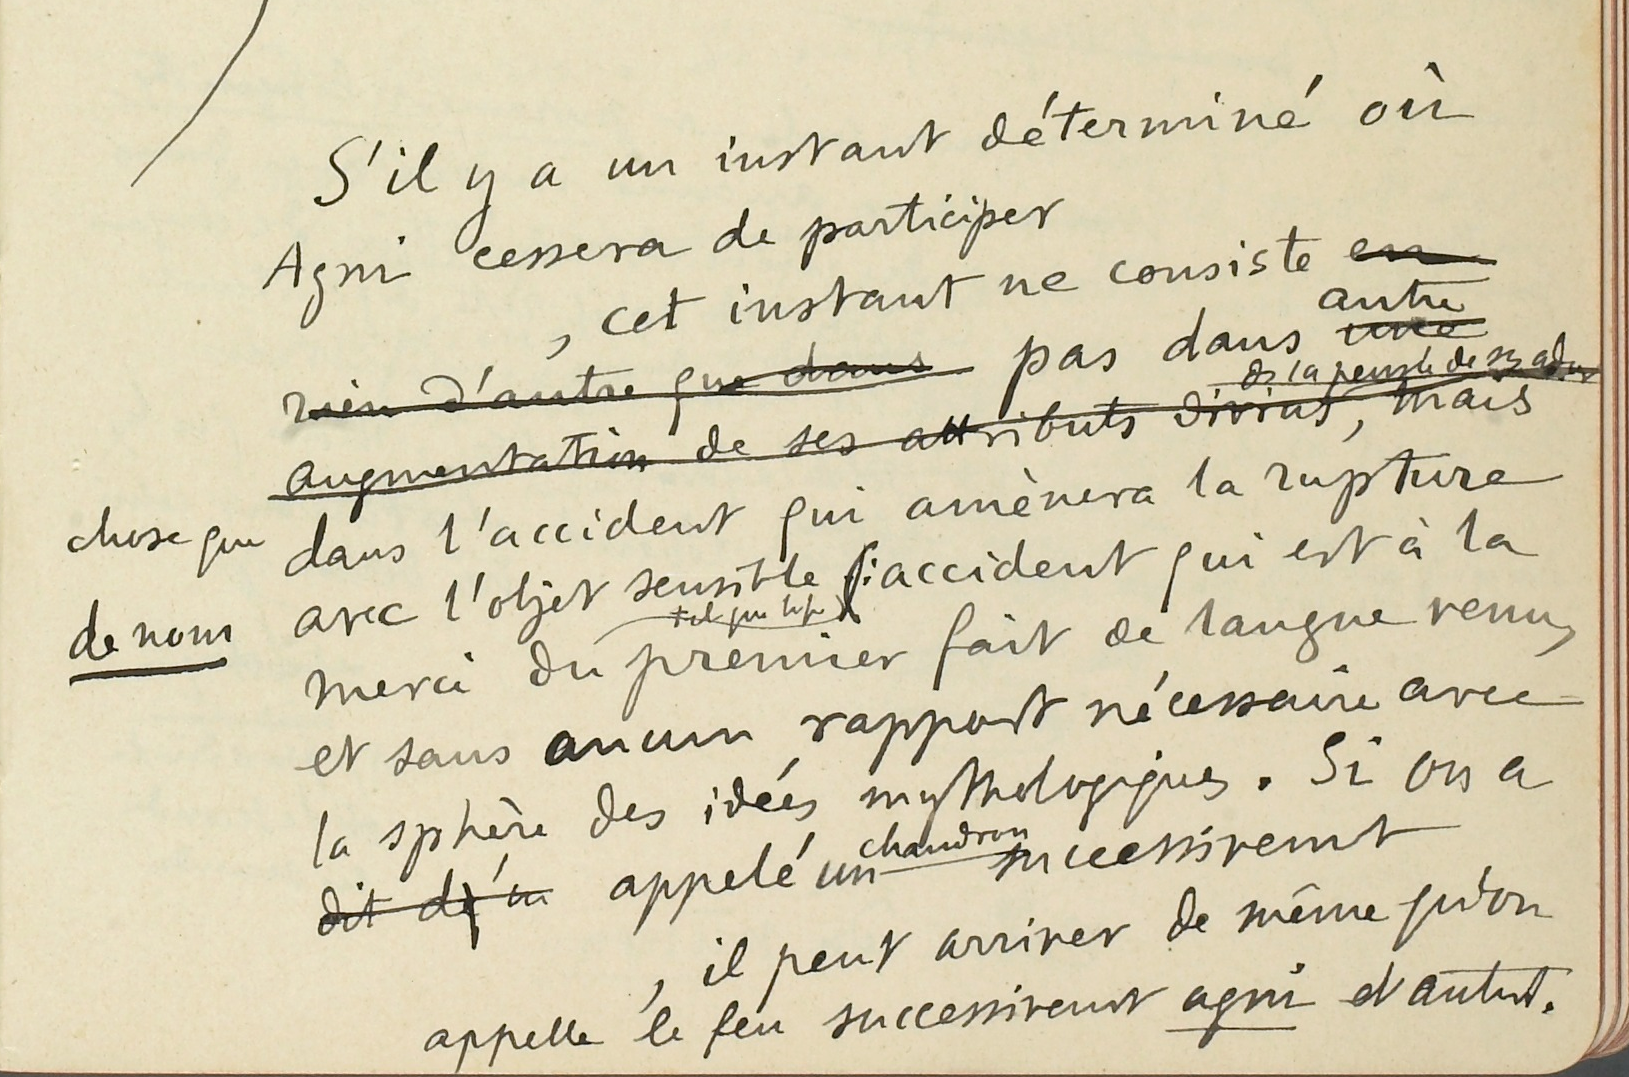 S'il y a un instant déterminé où
Agni cessera de participer
, cet instant ne consiste en
autre
rien d'autre que dans pas dans une
ds la pensée de ses ador
augmentation de ses attributs divins, mais
chose que dans l'accident qui amènera la rupture
avec l'objet sensible (: accident qui est à la
de nom
tel que le feu
merci du premier fait de langue venu,
et sans aucun rapport nécessaire avec
la sphère des idées mythologiques. Si on a
chaudron
dit de appelé un successivemt
, il peut arriver de même qu'on
appelle le feu successivemt agni et autemt.